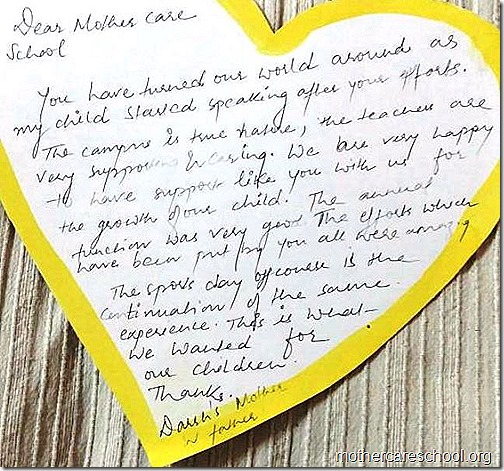 Dear Mother care
School
You have turned our world around as
my child started speaking after your efforts.
The campus is true nature, the teachers are
very supporting & caring. We are very happy
to have support like you with us for
the growth of our child. The annual
function was very good. The efforts which
have been put by you all were amazing
The sports day ofcourse is the
continuation of the same
experience. This is what
We Wanted for
our children.
Thanks.
Darsh's Mother
father
mothercareschool.org